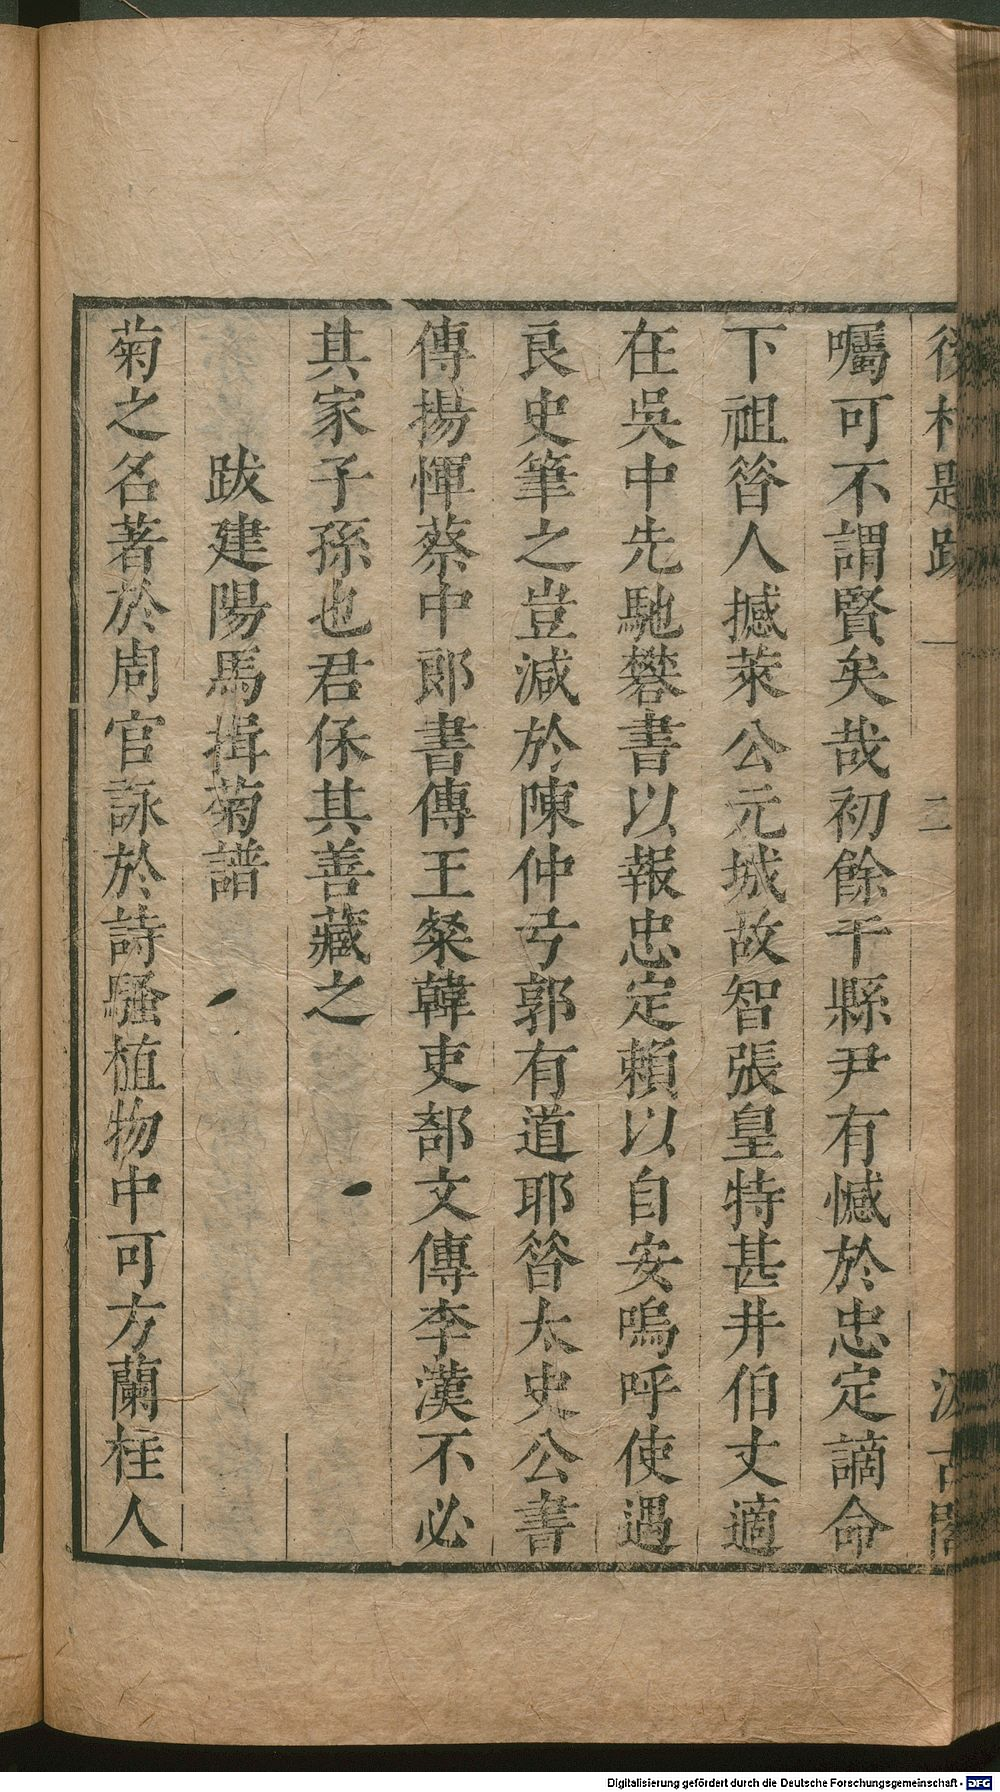 後村題跋 一 二 汲古閣
囑可不謂賢矣哉初餘干縣尹有憾於忠定謫命
下祖昝人撼萊公元城故智張皇特甚井伯丈適
在吳中先馳礬書以報忠定賴以自安嗚呼使遇
良史筆之豈減於陳仲弓郭有道耶昝太史公書
傳揚惲蔡中郎書傳王粲韓吏部文傳李漢不必
其家子孫也君係其善藏之
跋建陽馬揖菊譜
菊之名著於周官詠於詩騷植物中可方蘭桂人
Digitalisierung gefördert durch die Deutsche Forschungsgemeinschaft - DFG